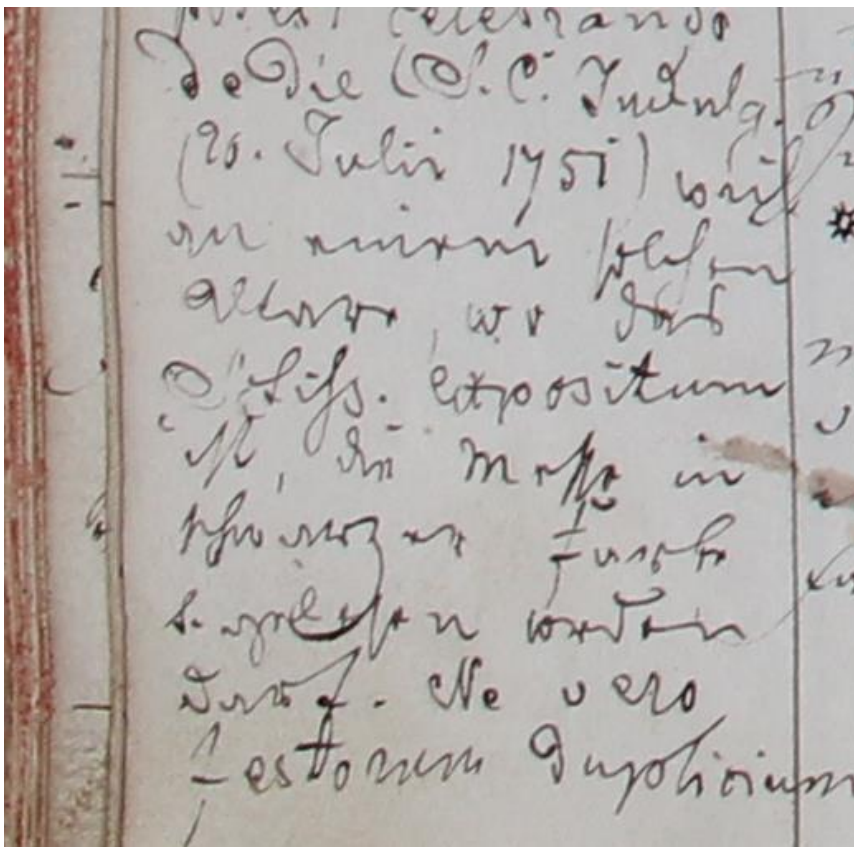 celebrando
de die (S. C. Indulg.
Julii 1751) weil
an einem solchen
Altare, wo das
expositum
ist, die Messe in
schwarzer Farbe
gelesen werden
darf. Ne vero
festorum Duplicium